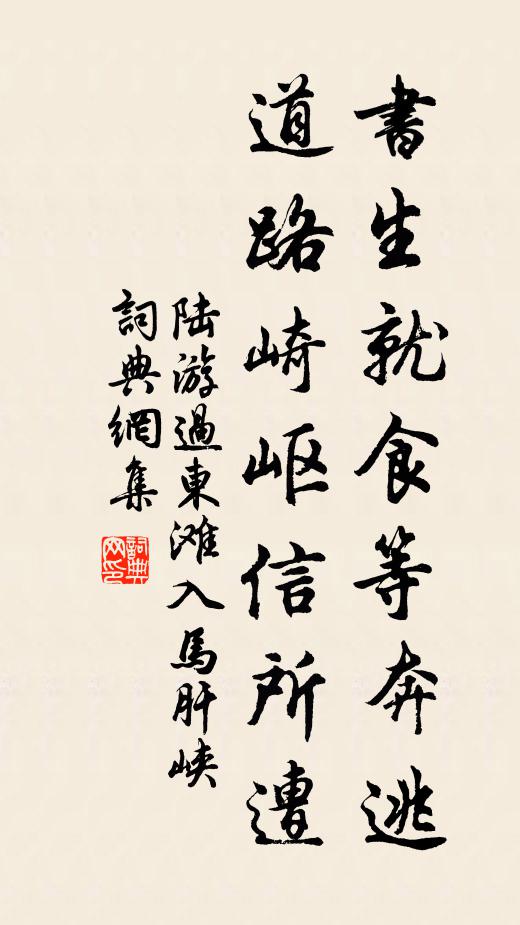 書生就食等奔逃
道路崎岖信所遭
陆游過東滩入馬肝峽
詞典網集
詞典网印